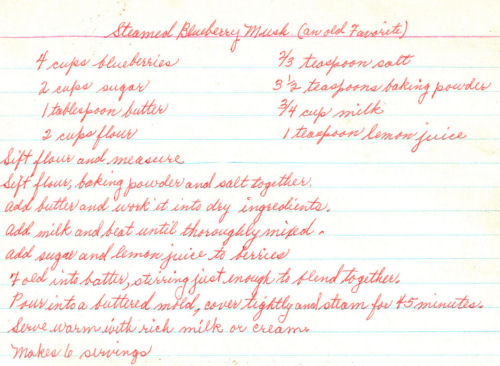 Steamed Blueberry Musk (an old Favorite)
4 cups blueberries 2/3 teaspoon salt
2 cups sugar 3 1/2 teaspoons baking powder
1 tablespoon butter 3/4 cup milk
2 cups flour 1 teaspoon lemon juice
Sift flour and measure
Sift flour, baking powder and salt together.
Add butter and work it into dry ingredients.
Add milk and beat until thoroughly mixed.
Add sugar and lemon juice to berries
Fold into batter, stirring just enough to blend together.
Pour into a buttered mold, cover tightly and steam for 45 minutes.
Serve warm with rich milk or cream.
Makes 6 servings